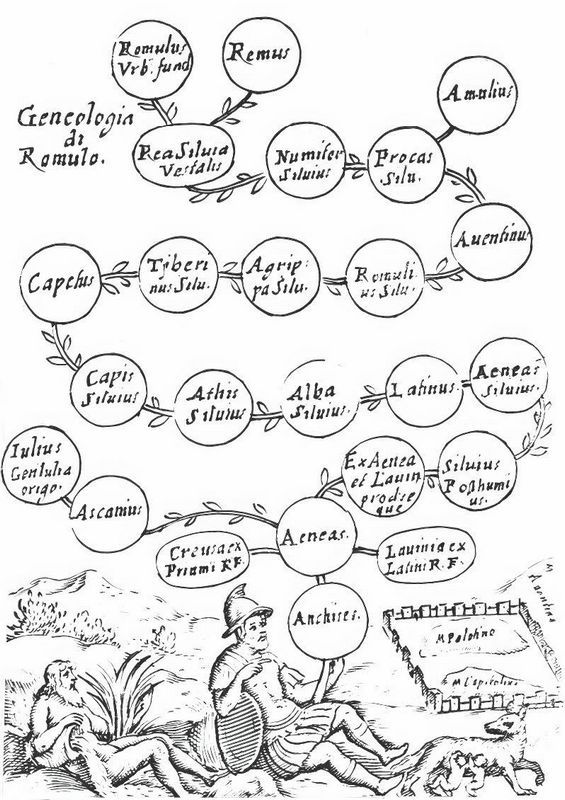 Romulus
Vrb. fund
Remus
Amulius
Geneologia
di
Romulo.
Rea Siluia
Vestalis
Numitor
Siluius
Procas
Silu.
Auentinus
Capetus
Tyberi
nus Silu.
Agrip:
pa Silu.
Romuli
us Silu.
Capis
Siluius
Athis
Siluius
Alba
Siluius.
Latinus.
Aeneas
Siluius.
Iulius
Gentulia
origo.
Ascanius
Ex Aenea
et Lauin
prodse
que
Siluius
Posthumi
us.
Creusa ex
Priami R.F.
Aeneas.
Lauinia ex
Latini R.F.
Anchises.
Auentino
M Palatino
M Capitolin